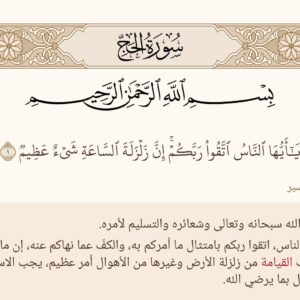 سُورَةُ الحَجِّ
بِسْمِ ٱللَّهِ ٱلرَّحْمَٰنِ ٱلرَّحِيمِ
يَٰٓأَيُّهَا ٱلنَّاسُ ٱتَّقُوا۟ رَبَّكُمْ ۚ إِنَّ زَلْزَلَةَ ٱلسَّاعَةِ شَىْءٌ عَظِيمٌ ١
الله سبحانه وتعالى وشعائره والتسليم لأمره.
اتقوا ربكم بامتثال ما أمركم به، والكف عما نهاكم عنه، إن ما
القيامة من زلزلة الأرض وغيرها من الأهوال أمر عظيم، يجب
بما يرضي الله.